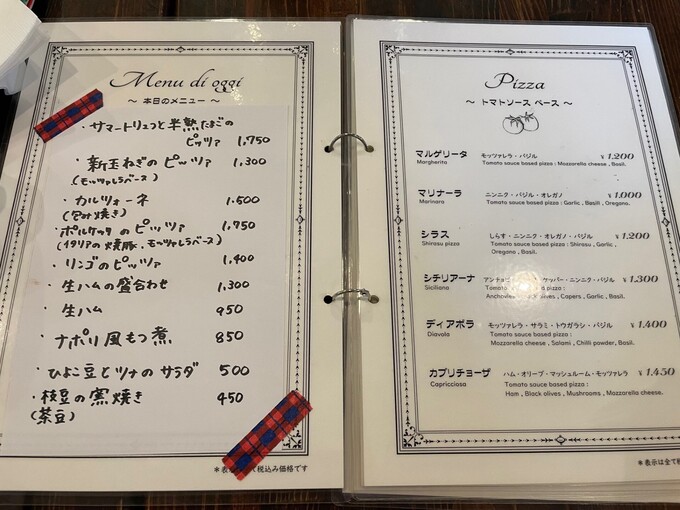 Menu di oggi
〜 本日のメニュー 〜
・サマートリュフと半熟たまごの
ピッツァ 1,750
・新玉ねぎのピッツァ 1,300
(モッツァレラベース)
・カルツォーネ 1,500
(包み焼き)
・ポルケッタのピッツァ 1,750
(イタリアの焼豚、モッツァレラベース)
・リンゴのピッツァ 1,400
・生ハムの盛合わせ 1,300
・生ハム 950
・ナポリ風もつ煮 850
・ひよこ豆とツナのサラダ 500
・枝豆の窯焼き 450
(茶豆)
＊表示 て税込み価格です
Pizza
〜 トマトソース ベース 〜
マルゲリータ モッツァレラ・バジル ¥1,200
Margherita Tomato sauce based pizza : Mozzarella cheese , Basil.
マリナーラ ニンニク・バジル・オレガノ ¥1,000
Marinara Tomato sauce based pizza : Garlic , Basil , Oregano.
シラス しらす・ニンニク・オレガノ・バジル ¥1,200
Shirasu pizza Tomato sauce based pizza : Shirasu , Garlic ,
Oregano , Basil.
シチリアーナ アンチョ ケッパー・ニンニク・バジル ¥1,300
Siciliana Tomato sauce based pizza :
Ancho ives , Capers , Garlic , Basil.
ディアボラ モッツァレラ・サラミ・トウガラシ・バジル ¥1,400
Diavola Tomato sauce based pizza :
Mozzarella cheese , Salami , Chilli powder, Basil.
カプリチョーザ ハム・オリーブ・マッシュルーム・モッツァレラ ¥1,450
Capricciosa Tomato sauce based pizza :
Ham , Black olives , Mushrooms , Mozzarella cheese.
＊表示は全て税